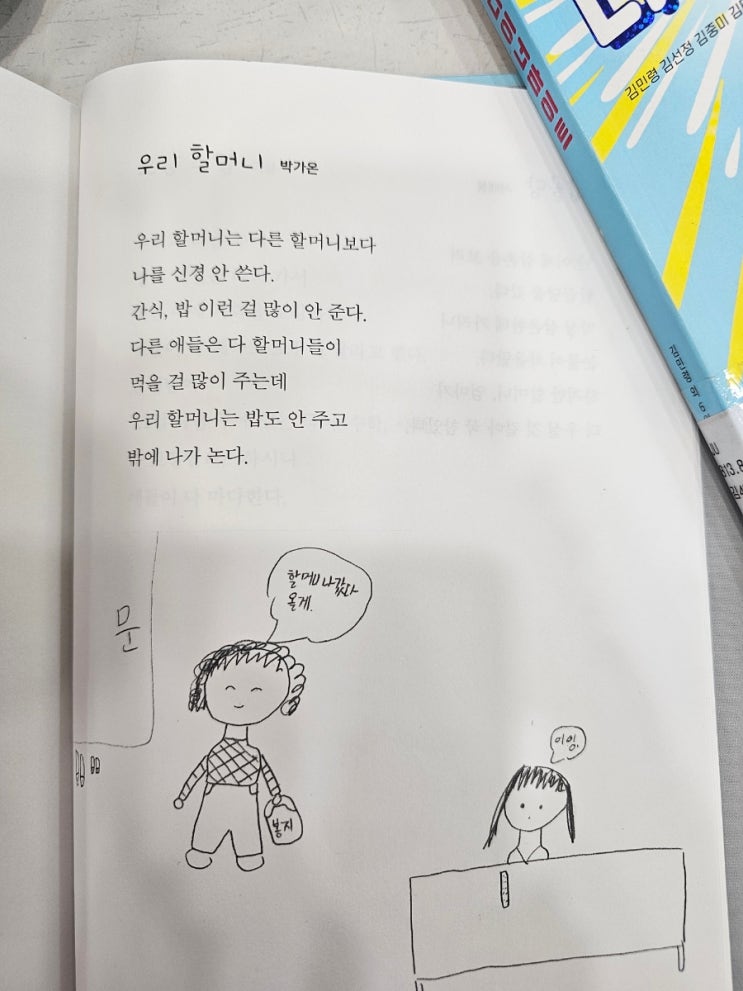 우리 할머니 박가온
우리 할머니는 다른 할머니보다
나를 신경 안 쓴다.
간식, 밥 이런 걸 많이 안 준다.
다른 애들은 다 할머니들이
먹을 걸 많이 주는데
우리 할머니는 밥도 안 주고
밖에 나가 논다.
문
할머니 나갔다
올게.
봉지
이잉.
김민령 김선정 김중미